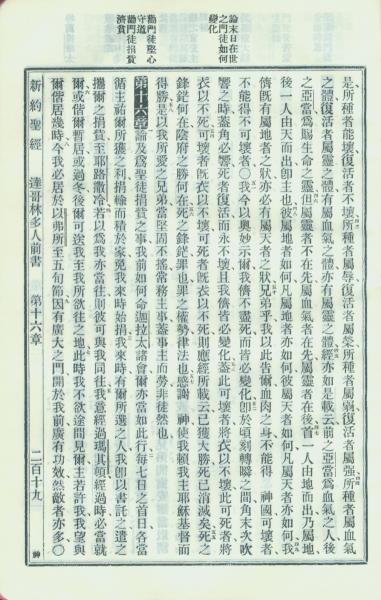 論末日在世
之門徒如何
變化
勸門徒堅心
守道
勸門徒捐貲
濟貧
是、所種者能壞、復活者不壞、所種者屬辱、復活者屬榮、所種者屬弱、復活者屬強、所種者屬血氣
之體、復活者屬靈之體、有屬血氣之體、亦有屬靈之體、經亦如是載云、前之亞當爲血氣之人、後
之亞當爲賜生命之靈、但屬靈者不在先、屬血氣者在先、屬靈者在後、首一人由地而出、乃屬地、
後一人由天而出、卽主也、彼屬地者如何、凡屬地者亦如何、彼屬天者如何、凡屬天者亦如何、我
儕旣有屬地者之狀、亦必有屬天者之狀、兄弟乎、我以此告爾、血肉之身、不能得 神國、可壞者
不能得不可壞者、○我今以奧妙示爾、我儕不盡死、而皆必變化、卽於頃刻轉瞬之間、角末次吹
響之時、蓋角必響、死者復活而永不壞、且我儕皆必變化、蓋此可壞者、將衣以不壞、此可死者、將
衣以不死、可壞者旣衣以不可壞、可死者旣衣以不死、則應經所載云、已獲大勝、死已消滅矣、死之
鋒鋩何在、陰府之勝何在、死之鋒鋩罪也、罪之權勢律法也、感謝 神使我賴我主耶穌基督而
得勝、是以我所愛之兄弟、當堅固不搖、常務主事、蓋事主而勞、非徒然也、
第十六章 論及爲聖徒捐貲之事、我前如何命迦拉太諸會、爾亦當如此行、每七日之首日、各當
循主祐爾所獲之利、捐輸而積於家、免我來時始捐、我來時有爾所選之人、我卽以書託之、遣之
攜爾之捐貲至耶路撒冷、若以爲我亦當往、則彼可與我同往、我意經過瑪其頓、經過時必當就
爾、或偕爾暫居、或過冬、後爾可送我至我所欲往之地、此時我不欲途間見爾、主若許我、我望與
爾偕居幾時、今我必居於以弗所至五旬節、因有廣大之門開於我前、廣有功效、然敵者亦多、○
新約聖經 達哥林多人前書 第十六章 二百十九